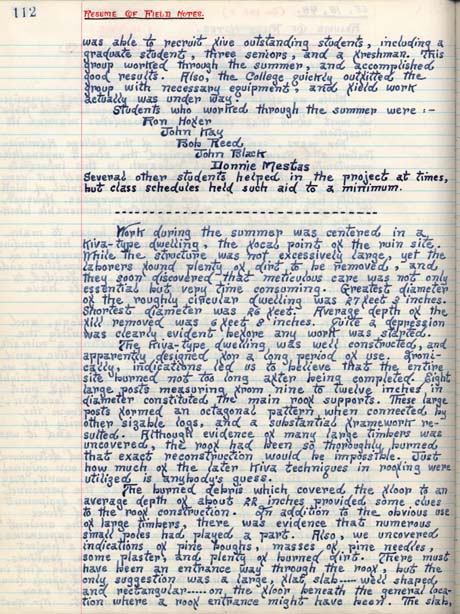 112
RESUME OF FIELD NOTES.
was able to recruit five outstanding students, including a
graduate student, three seniors, and a freshman. This
group worked through the summer, and accomplished
good results. Also, the College quickly outfitted the
group with necessary equipment, and field work
actually was under way.
Students who worked through the summer were :-
Ron
John Kay
Bob Reed
John Black
Donnie Mestas
Several other students helped in the project at times,
but class schedules held such aid to a minimum.
Work during the summer was centered in a
Kiva-type dwelling, the focal point of the ruin site.
While the structure was not excessively large, yet the
laborers found plenty of dirt to be removed, and
they soon discovered that meticulous care was not only
essential but very time consuming. Greatest diameter
of the roughly circular dwelling was 27 feet 3 inches.
Shortest diameter was 26 feet. Average depth of the
fill removed was 6 feet 2 inches. Quite a depression
was clearly evident before any work was started.
The Kiva-type dwelling was well constructed, and
apparently designed for a long period of use. Ironi-
cally, indications led us to believe that the entire
site burned not too long after being completed. Eight
large posts measuring from nine to twelve inches in
diameter constituted the main roof supports. These large
posts formed an octagonal pattern when connected by
other sizable logs, and a substantial framework re-
sulted. Although evidence of many large timbers was
uncovered, the roof had been so thoroughly burned
that exact reconstruction would be impossible. Just
how much of the later Kiva techniques in roofing were
utilized is anybody's guess.
The burned debris which covered the floor to an
average depth of about 28 inches provided some clues
to the roof construction. In addition to the obvious use
of large timbers, there was evidence that numerous
small poles had played a part. Also, we uncovered
indications of pine boughs, masses of pine needles,
some plaster and plenty of burned dirt. There must
have been an entrance way through the roof, but the
only suggestion was a large, flat, slab---- well shaped,
and rectangular-----on the floor beneath the general loca-
tion where a roof entrance might have been. The slab,